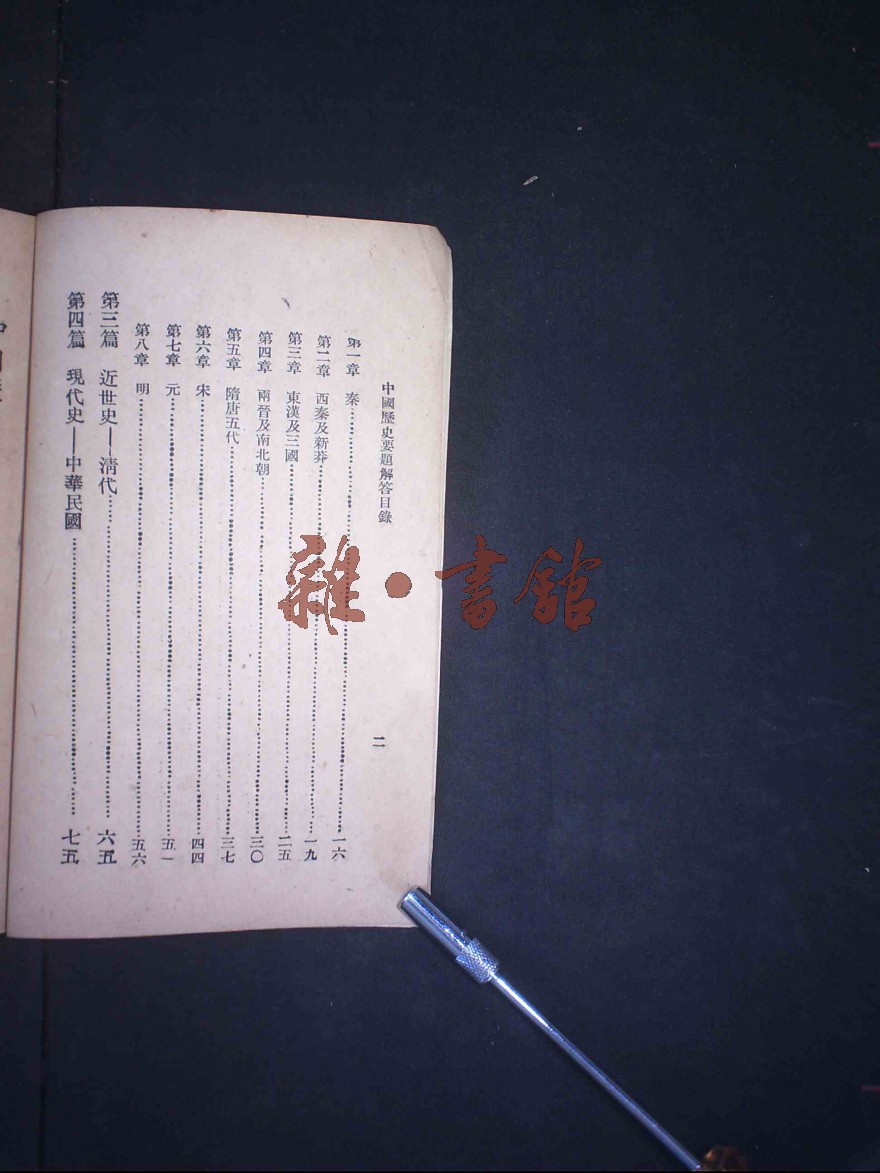 中國歷史要題解答目錄 二
第一章 秦 一六
第二章 西秦及新莽 一九
第三章 東漢及三國 二五
第四章 兩晉及南北朝 三〇
第五章 隋唐五代 三七
第六章 宋 四四
第七章 元 五一
第八章 明 五六
第三篇 近世史——清代 六五
第四篇 現代史——中華民國 七五
雜·書館